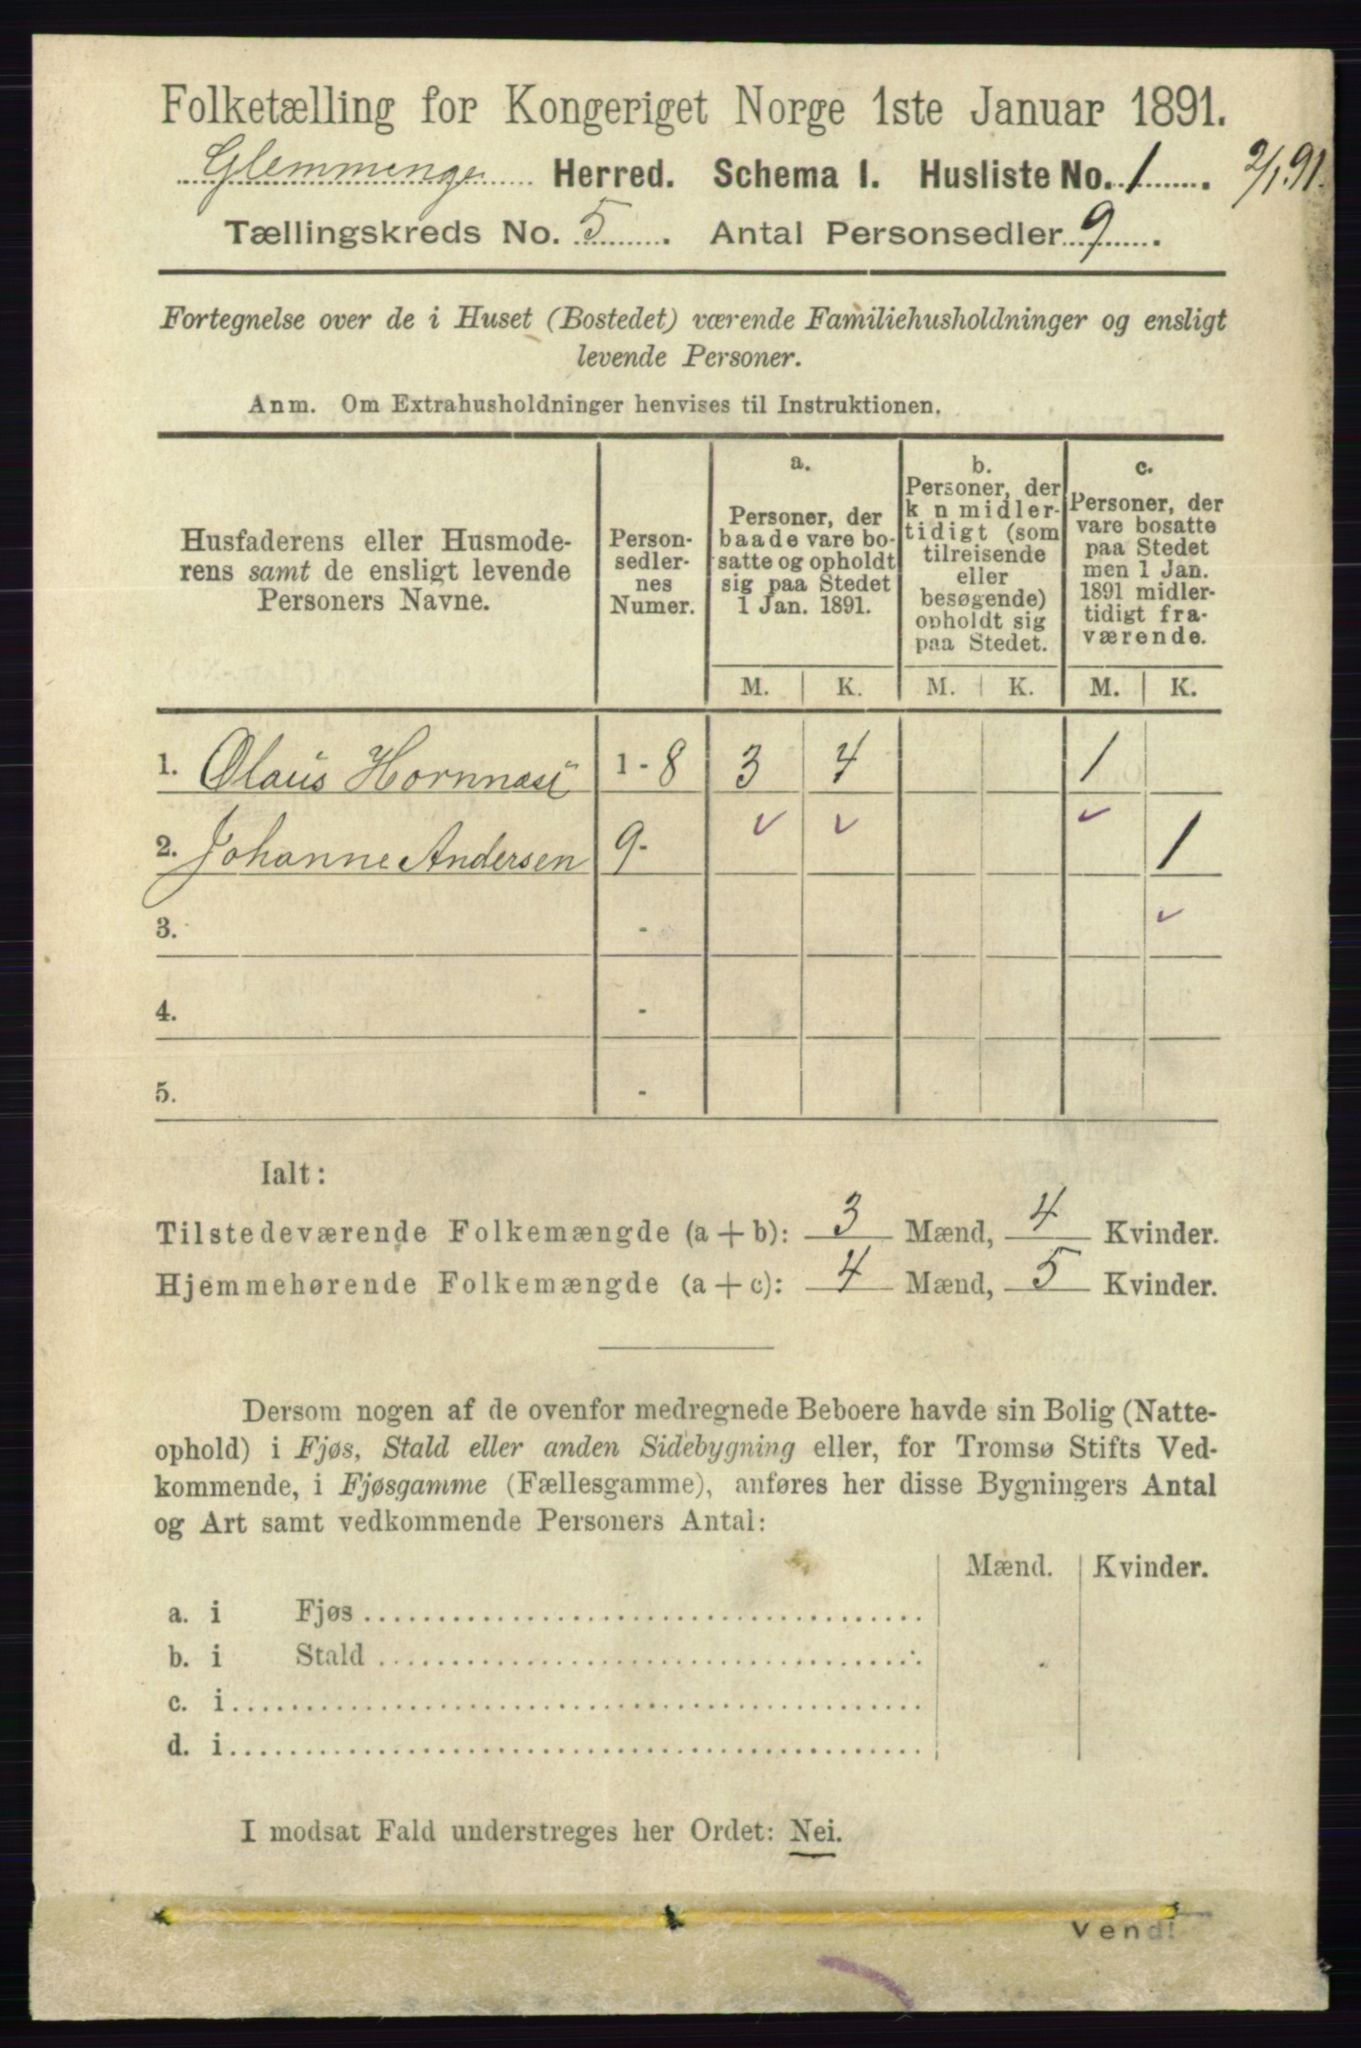 Folketælling for Kongeriget Norge 1ste Januar 1891.
Glemminge Herred. Schema I. Husliste No. 1. 2/1.91.
Tællingskreds No. 5. Antal Personsedler 9.
Fortegnelse over de i Huset (Bostedet) værende Familiehusholdninger og ensligt
levende Personer.
Anm. Om Extrahusholdninger henvises til Instruktionen.
Husfaderens eller Husmode-
rens samt de ensligt levende
Personers Navne.
Person-
sedler-
nes
Numer.
a.
Personer, der
baade vare bo-
satte og opholdt
sig paa Stedet
1 Jan. 1891.
b.
Personer, der
k n midler-
tidigt (som
tilreisende
eller
besøgende)
opholdt sig
paa Stedet.
c.
Personer, der
vare bosatte
paa Stedet
men 1 Jan.
1891 midler-
tidigt fra-
værende.
M. K. M. K. M. K.
1. Olaus Hornnæs 1-8 3 4 1
✓ ✓ ✓
2. Johanne Andersen 9- 1
3. - ✓
4. -
5. -
Ialt:
Tilstedeværende Folkemængde (a+b): 3 Mænd, 4 Kvinder.
Hjemmehørende Folkemængde (a+c): 4 Mænd, 5 Kvinder.
Dersom nogen af de ovenfor medregnede Beboere havde sin Bolig (Natte-
ophold) i Fjøs, Stald eller anden Sidebygning eller, for Tromsø Stifts Ved-
kommende, i Fjøsgamme (Fællesgamme), anføres her disse Bygningers Antal
og Art samt vedkommende Personers Antal:
Mænd. Kvinder.
a. i Fjøs
b. i Stald
c. i
d. i
I modsat Fald understreges her Ordet: Nei.
Vend!